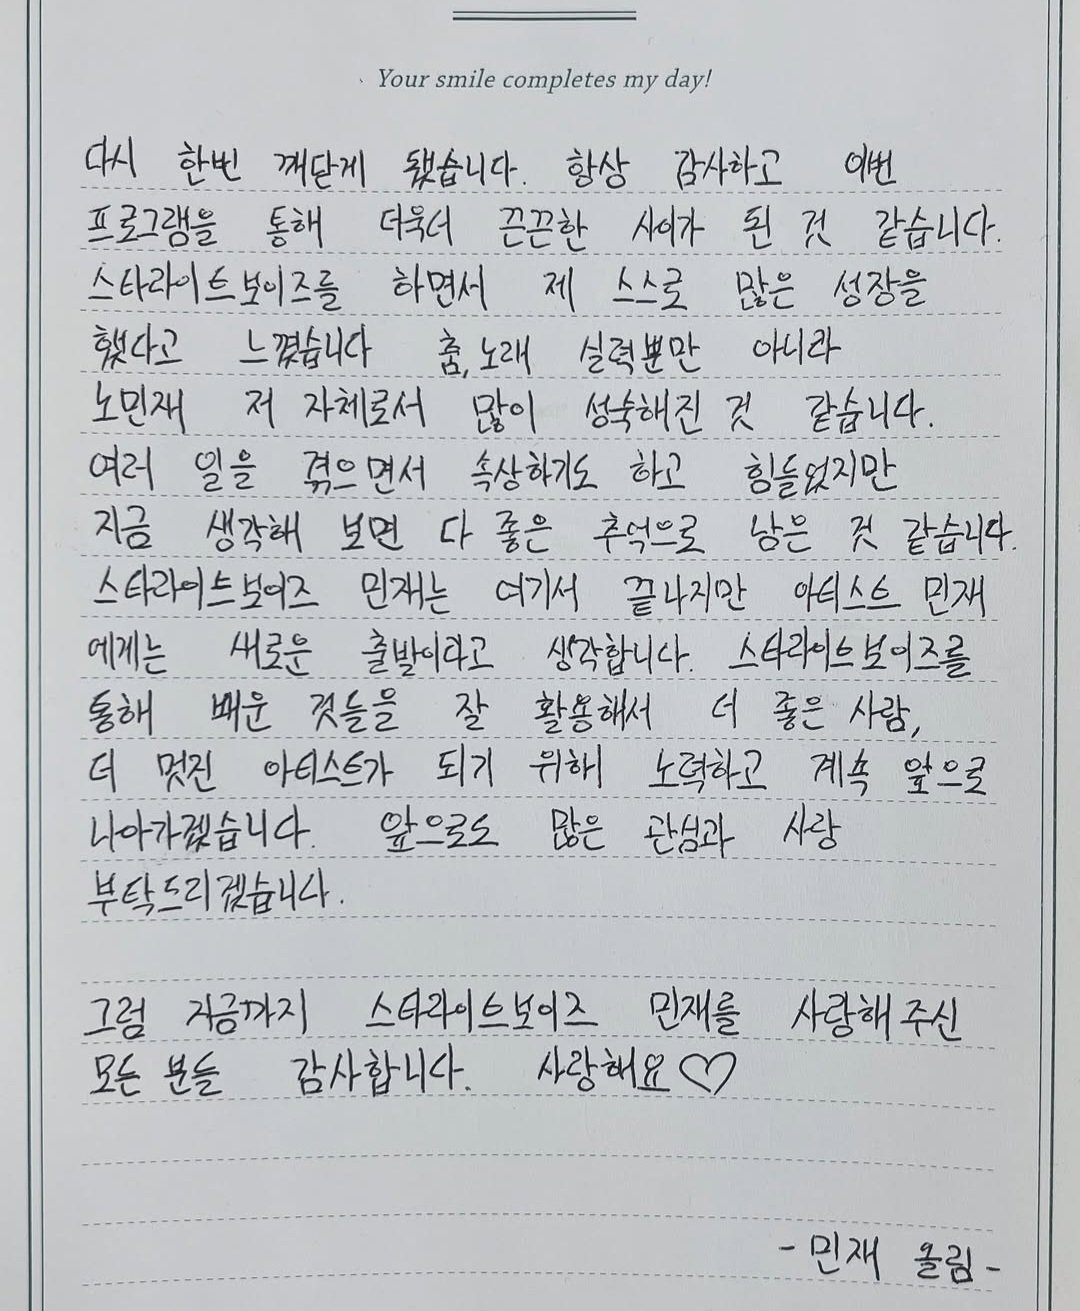 Your smile completes my day!
다시 한번 깨닫게 됐습니다. 항상 감사하고 이번
프로그램을 통해 더욱더 끈끈한 사이가 된 것 같습니다.
스타라이트보이즈를 하면서 제 스스로 많은 성장을
했다고 느꼈습니다 춤, 노래 실력뿐만 아니라
노민재 저 자체로서 많이 성숙해진 것 같습니다.
여러 일을 겪으면서 속상하기도 하고 힘들었지만
지금 생각해 보면 다 좋은 추억으로 남은 것 같습니다.
스타라이트보이즈 민재는 여기서 끝나지만 아티스트 민재
에게는 새로운 출발이라고 생각합니다. 스타라이트보이즈를
통해 배운 것들을 잘 활용해서 더 좋은 사람,
더 멋진 아티스트가 되기 위해 노력하고 계속 앞으로
나아가겠습니다. 앞으로도 많은 관심과 사랑
부탁드리겠습니다.
그럼 지금까지 스타라이트보이즈 민재를 사랑해 주신
모든 분들 감사합니다. 사랑해요♡
- 민재 올림 -